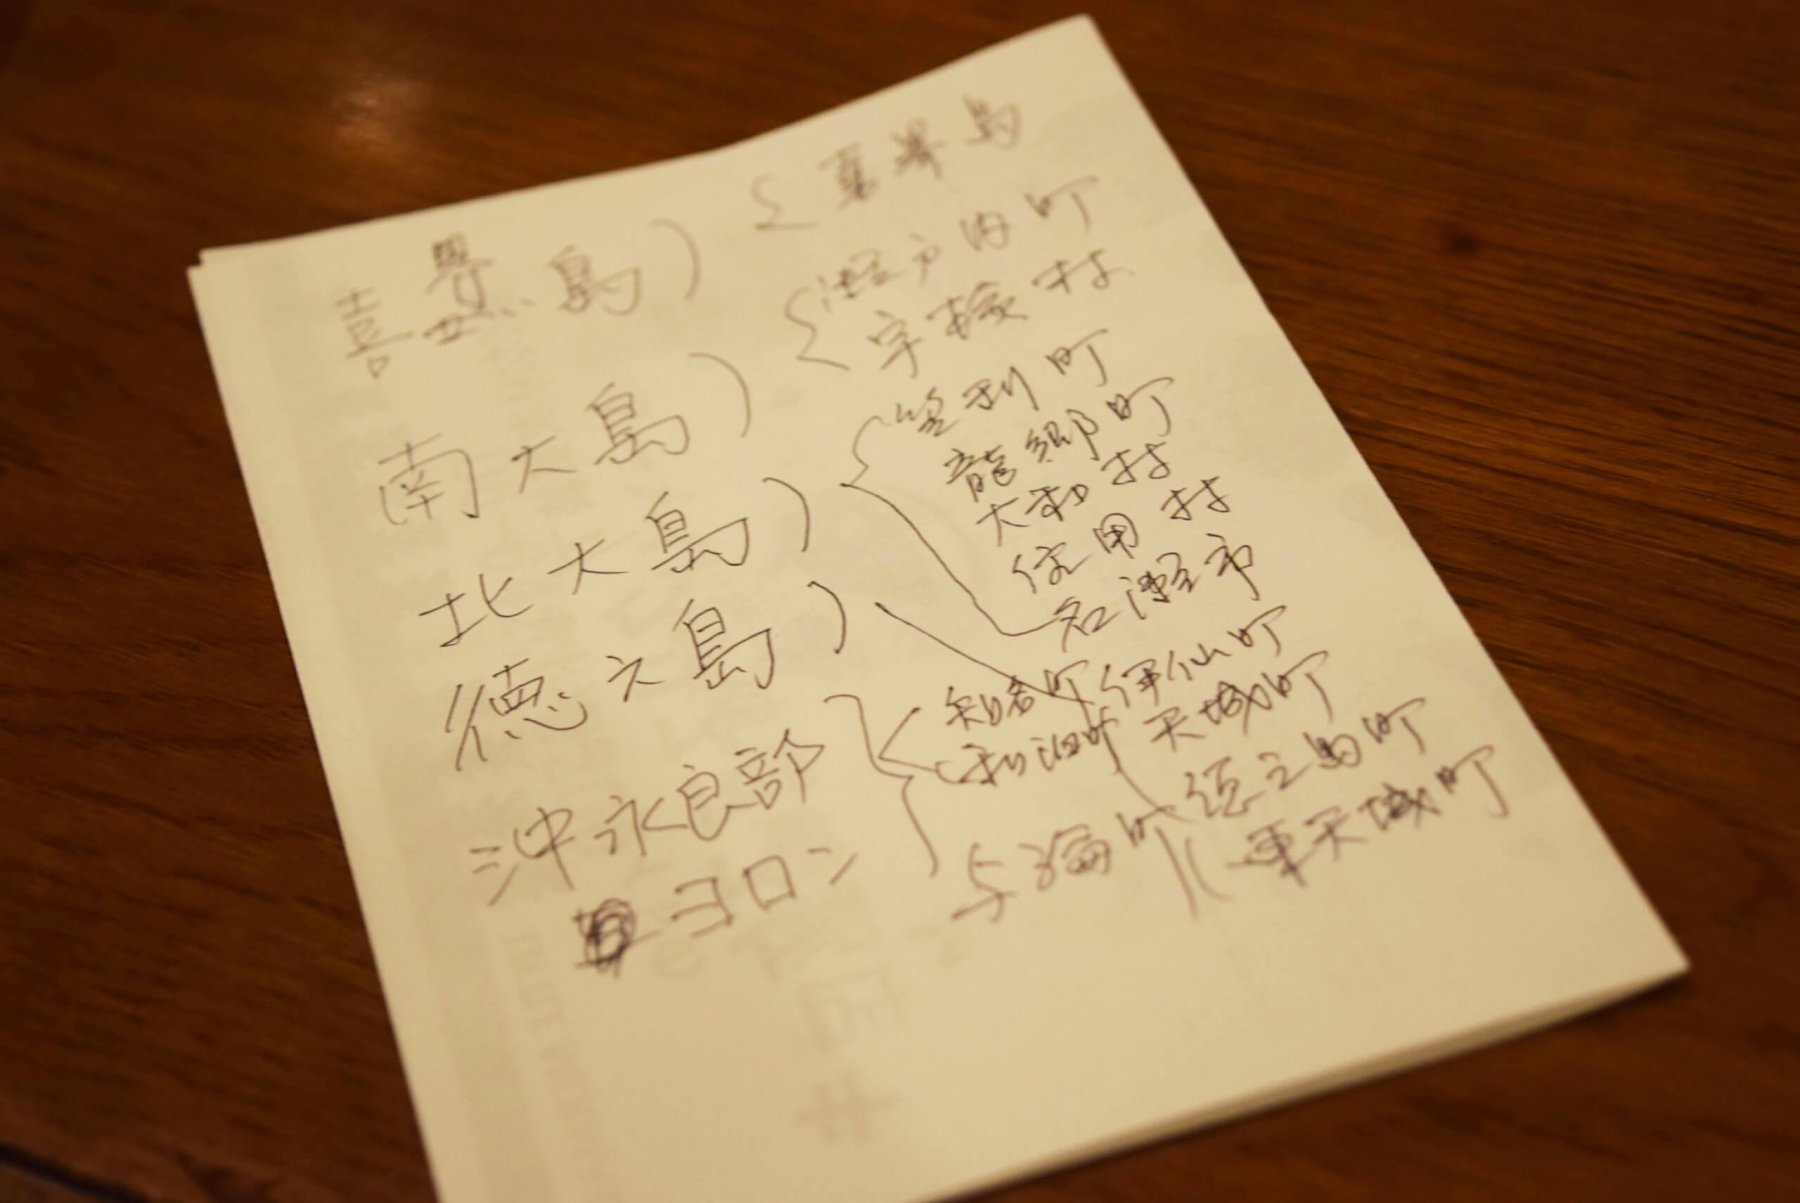 喜界島) { 喜界島
南大島) { 瀬戸内町
宇検村
北大島) { 笠利町
龍郷町
大和村
住用村
名瀬市
徳之島) 伊仙町
天城町
徳之島町
(東天城町
沖永良部 { 知名町
和泊町
ヨロン 与論町